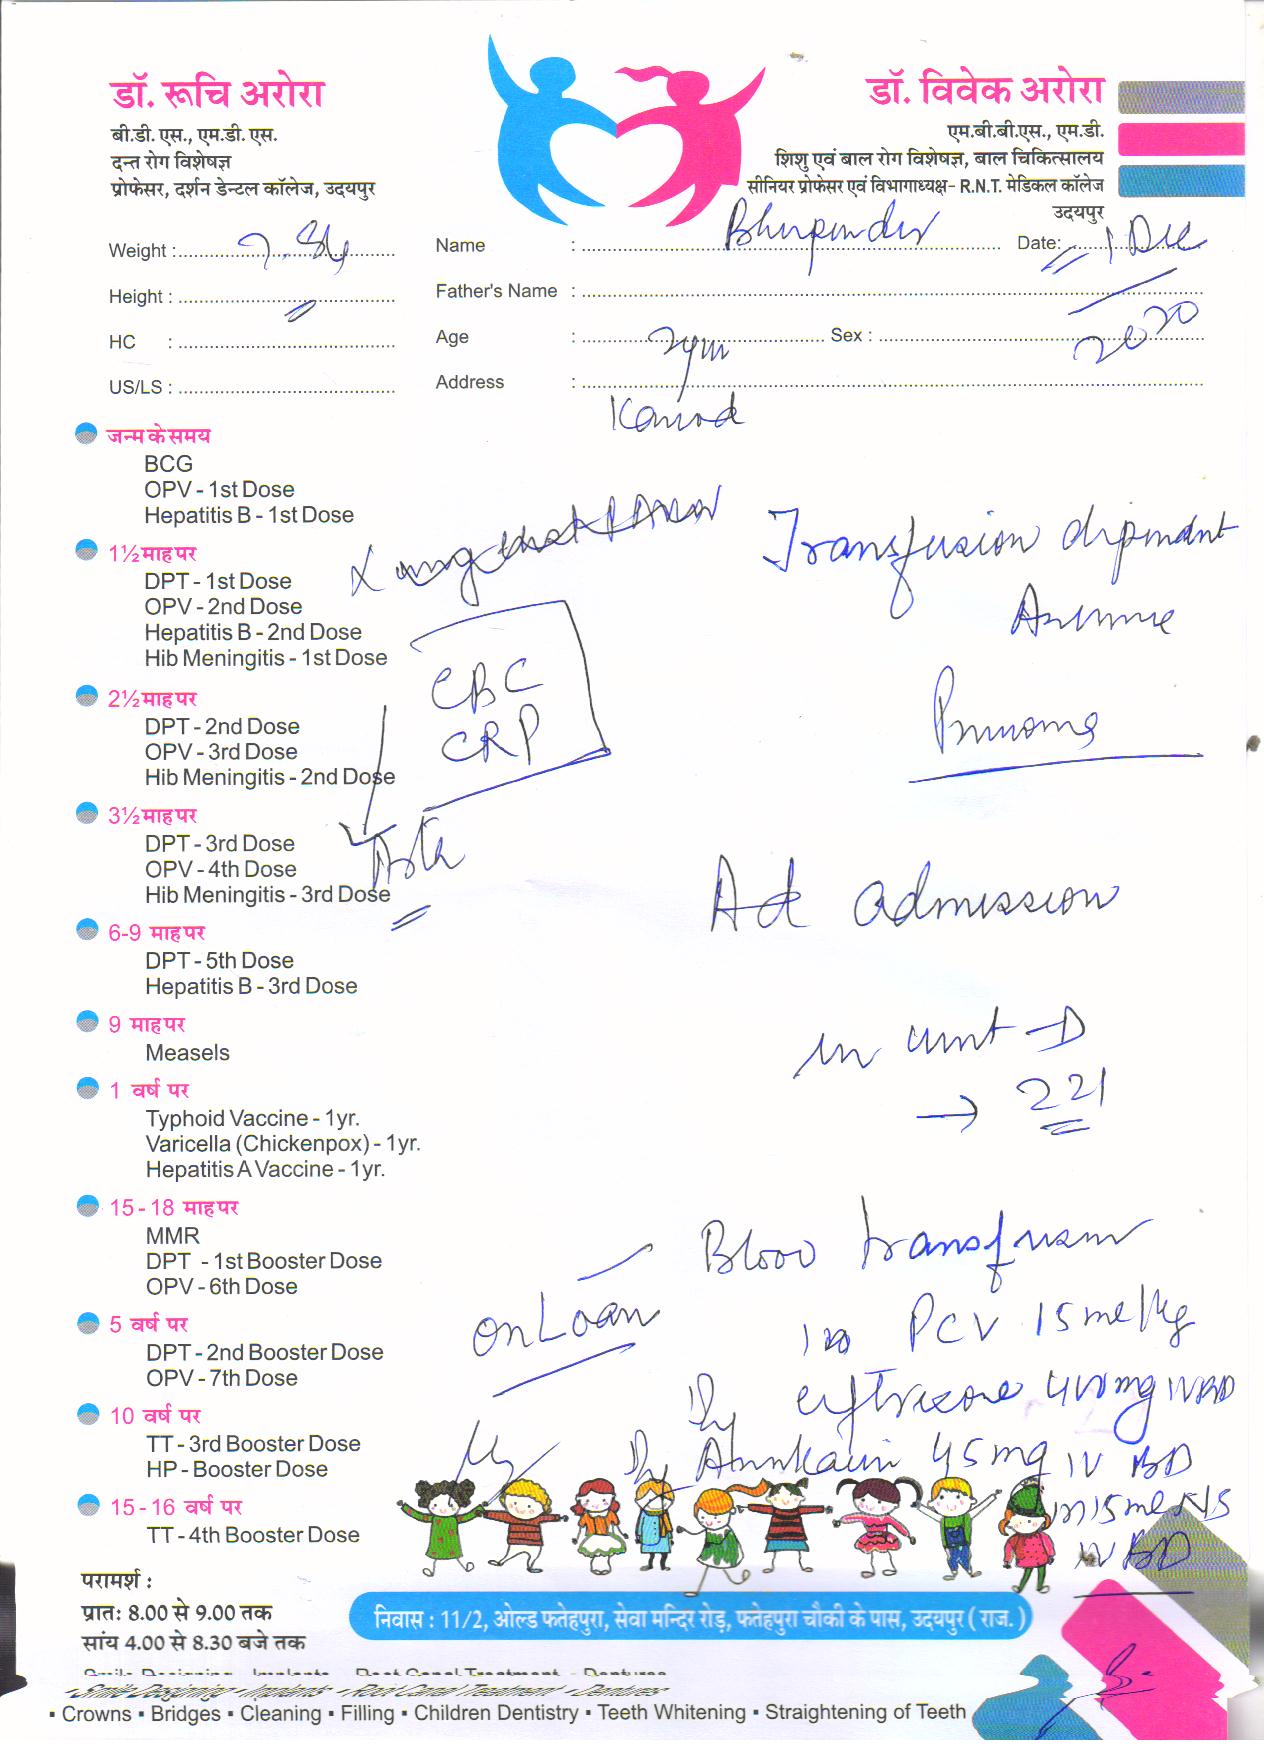 डॉ. रूचि अरोरा
बी.डी. एस., एम.डी. एस.
दन्त रोग विशेषज्ञ
प्रोफेसर, दर्शन डेन्टल कॉलेज, उदयपुर
डॉ. विवेक अरोरा
एम.बी.बी.एस., एम.डी.
शिशु एवं बाल रोग विशेषज्ञ, बाल चिकित्सालय
सीनियर प्रोफेसर एवं विभागाध्यक्ष- R.N.T. मेडिकल कॉलेज
उदयपुर
Weight :
Name : Bhupender Date: 1 Dec
2020
Height :
Father's Name :
HC :
Age : Sex :
US/LS :
Address :
Kanod
जन्म के समय
BCG
OPV - 1st Dose
Hepatitis B - 1st Dose
1½ माह पर
DPT - 1st Dose
OPV - 2nd Dose
Hepatitis B - 2nd Dose
Hib Meningitis - 1st Dose
2½ माह पर
DPT - 2nd Dose
OPV - 3rd Dose
Hib Meningitis - 2nd Dose
3½ माह पर
DPT - 3rd Dose
OPV - 4th Dose
Hib Meningitis - 3rd Dose
6-9 माह पर
DPT - 5th Dose
Hepatitis B - 3rd Dose
9 माह पर
Measels
1 वर्ष पर
Typhoid Vaccine - 1yr.
Varicella (Chickenpox) - 1yr.
Hepatitis A Vaccine - 1yr.
15 - 18 माह पर
MMR
DPT - 1st Booster Dose
OPV - 6th Dose
5 वर्ष पर
DPT - 2nd Booster Dose
OPV - 7th Dose
10 वर्ष पर
TT - 3rd Booster Dose
HP - Booster Dose
15 - 16 वर्ष पर
TT - 4th Booster Dose
CBC
CRP
Transfusion dependent
Anemia
Ad admission
in unit - D
→ 221
Blood transfusion
on Loan
PCV 15 ml/kg
400mg IV BD
45 mg IV BD
in 15 ml NS
IV BD
परामर्श :
प्रातः 8.00 से 9.00 तक
सांय 4.00 से 8.30 बजे तक
निवास : 11/2, ओल्ड फतेहपुरा, सेवा मन्दिर रोड़, फतेहपुरा चौकी के पास, उदयपुर ( राज. )
- Smile Designing - Implants - Root Canal Treatment - Dentures
▪ Crowns ▪ Bridges ▪ Cleaning ▪ Filling ▪ Children Dentistry ▪ Teeth Whitening ▪ Straightening of Teeth